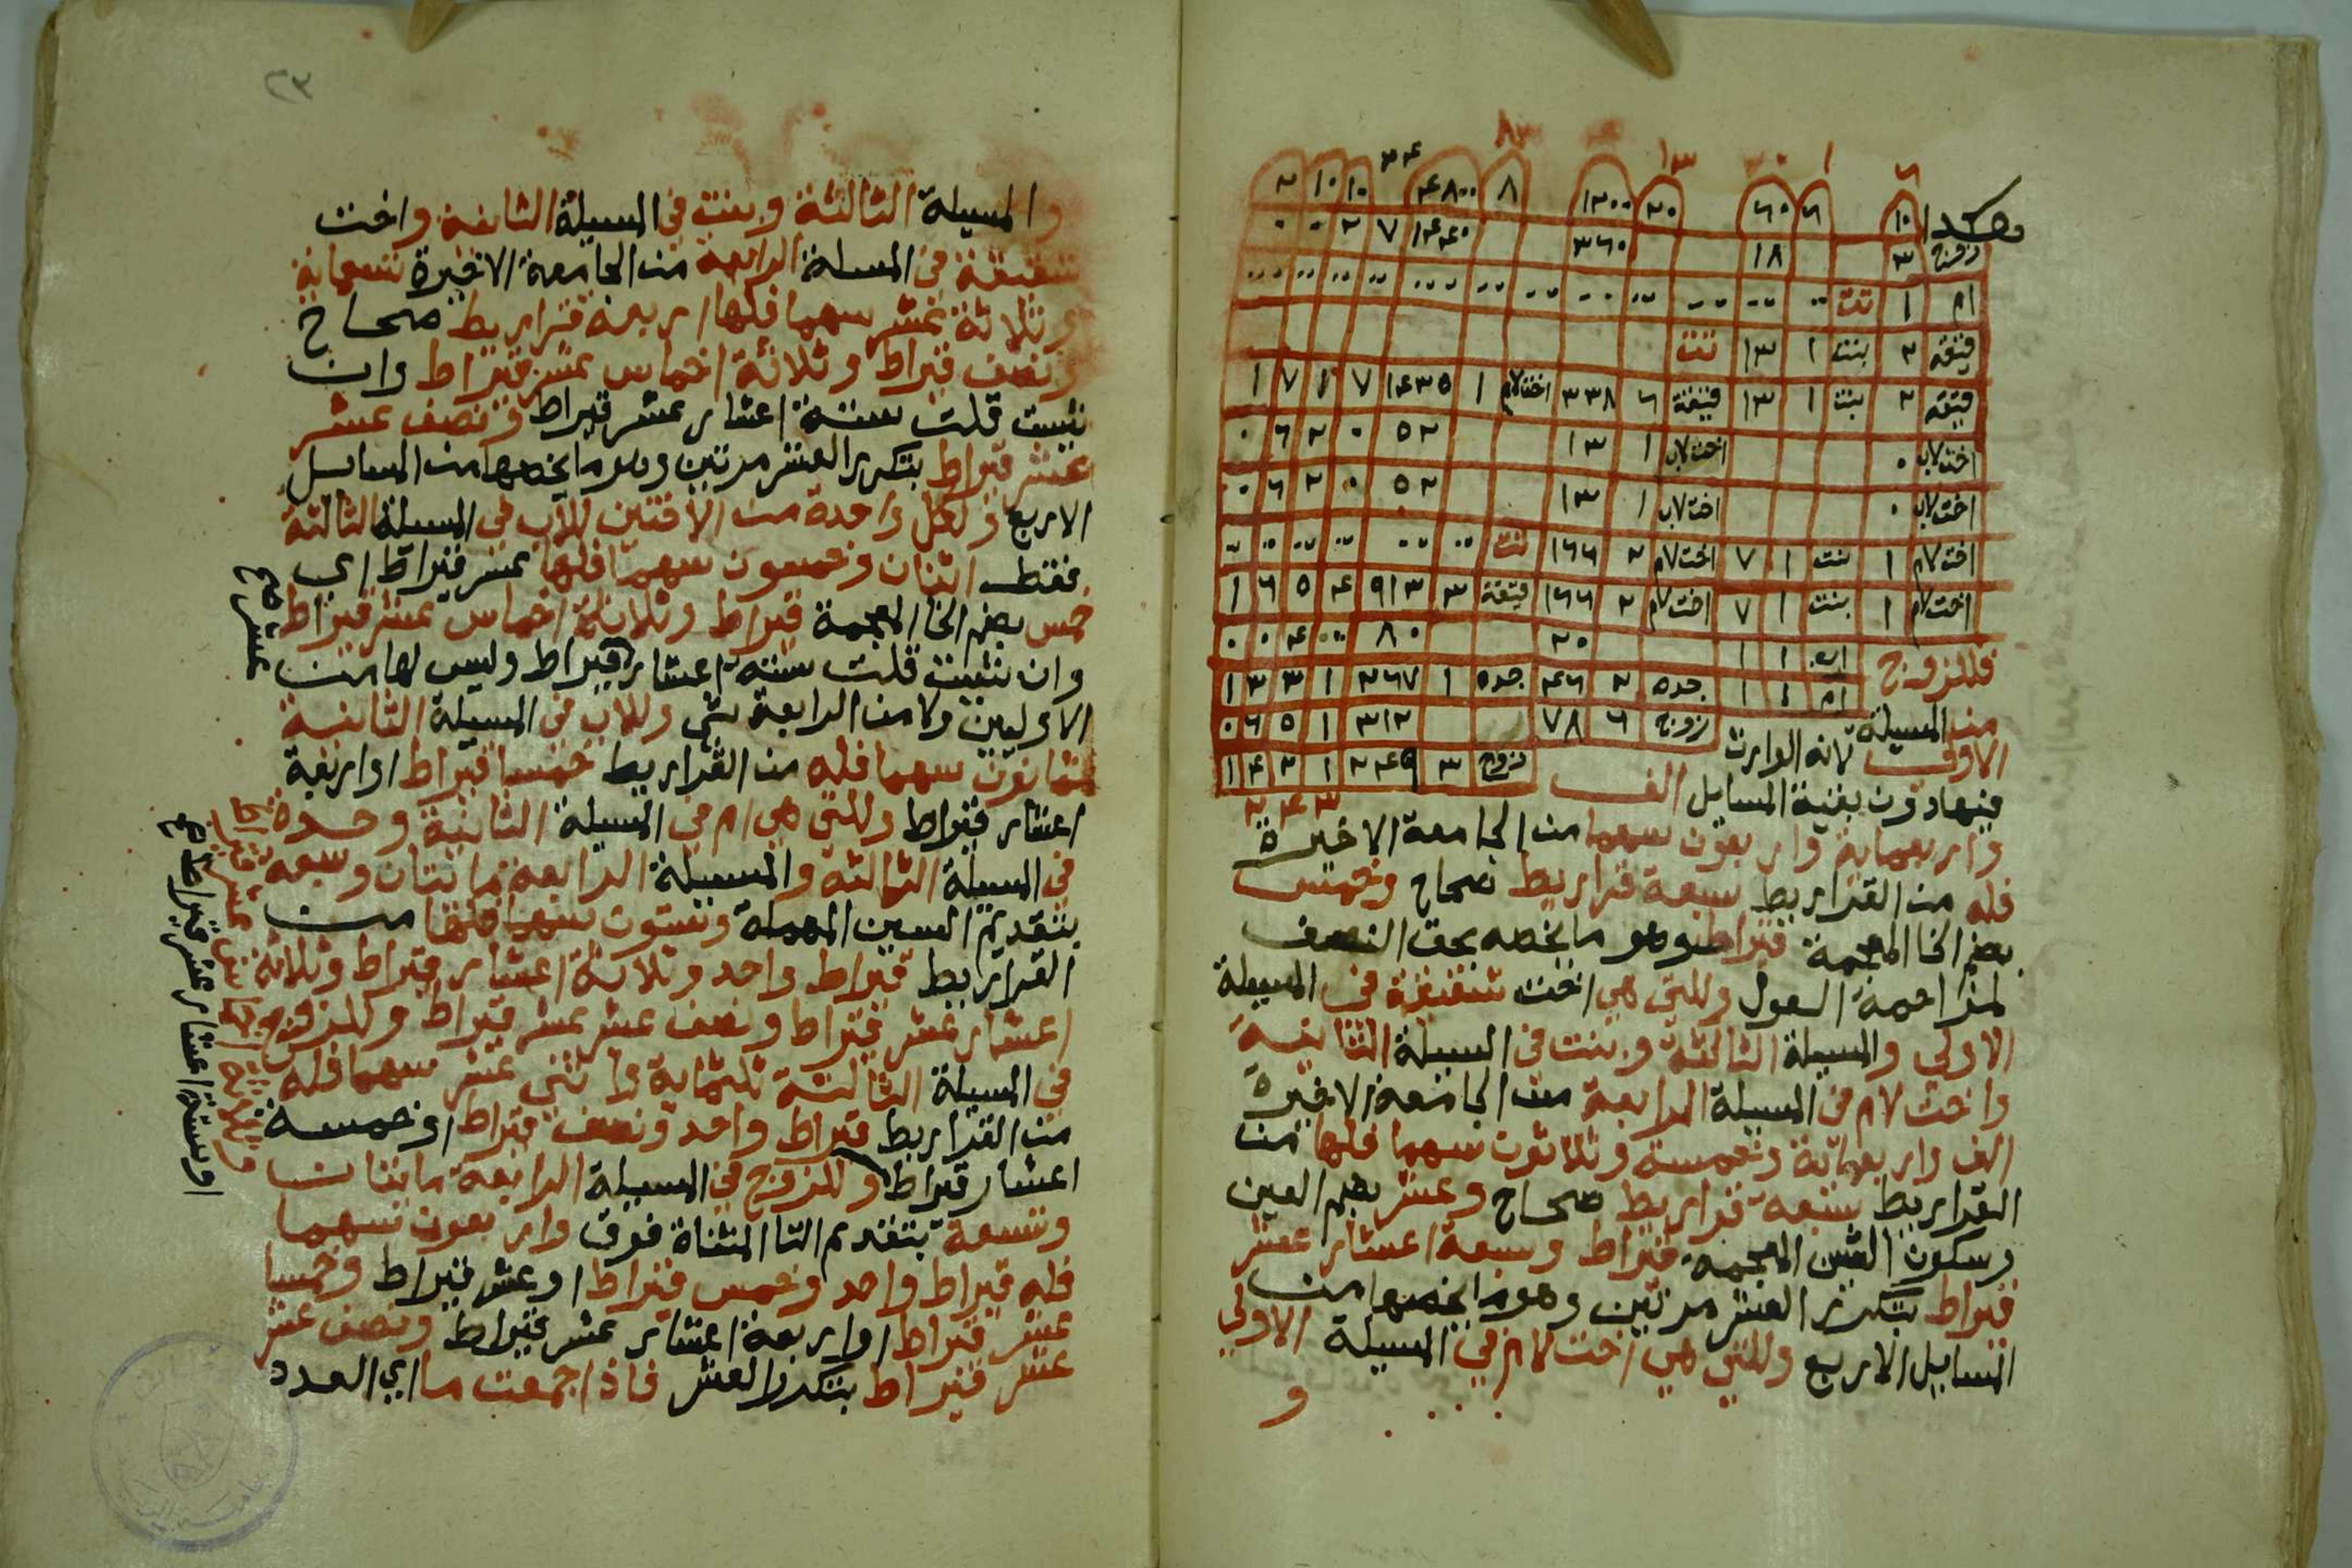 هكذا
١٠ ٦ ٦٠ ٢٠ ١٢٠٠ ٨ ٤٨٠٠ ١٠ ١٠ ٢
زوج ٣ ١٨ ٣٦٠ ١٤٤٠ ٧ ٢ ٠ ٠
ام ١ تت
قيقه ٢ بنت ١ ١٣ تت
قيقه ٢ بنت ١ ١٣ قيقة ٦ ٣٣٨ اخت لام ١ ١٤٣٥ ٧ ١ ٧ ١
اخت لاب ٠ اخت لاب ١ ١٣ ٥٢ ٠ ٢ ٦ ٠
اخت لاب ٠ اخت لاب ١ ١٣ ٥٢ ٠ ٢ ٦ ٠
اخت لام ١ بنت ١ ٧ اخت لام ٢ ١٦٦ تت
اخت لام ١ بنت ١ ٧ اخت لام ٢ ١٦٦ قيقة ٣ ٩١٣ ٤ ٥ ٦ ١
اب ١ ١ ٢٠ ٨٠ ٠ ٤ ٠ ٠
ام ١ ١ جده ٢ ٤٦ جده ١ ٢٦٧ ١ ٣ ٣ ١
زوج ٦ ٧٨ ٣١٢ ١ ٥ ٦ ٠
زوج ٣ ٢٤٩ ١ ٢ ٤ ١
فللزوج
من المسيلة
الاولى لانه الوارث
فيها دون بقية المسايل الف
واربعماية واربعون سهما من الجامعة الاخيرة
فله من القراريط سبعة قراريط صحاح وخمس
بضم الخا المعجمة قيراط وهو ما يخصه بحق النصف
لمزاحمة العول وللتي هي اخت شقيقة في المسيلة
الاولى والمسيلة الثالثة وبنت في السيلة الثانية
واخت لام في المسيلة الرابعة من الجامعة الاخيرة
الف واربعمائة وخمسة وثلاثون سهما فلها من
القراريط سبعة قراريط صحاح وعشر بضم العين
وسكون الشين المعجمة قيراط وسبعة اعشار عشر
قيراط بتكرر العشر مرتين وهو ما يخصها من
المسايل الاربع وللتي هي اخت لام في المسيلة الاولي
و
٢٣
والمسيلة الثالثة وبنت في المسيلة الثانية واخت
شقيقة في المسلة الرابعة من الجامعة الاخيرة تسعماية
وثلاثة عشر سهما فلها اربعة قراريط صحاح
ونصف قيراط وثلاثة اخماس عشر قيراط وان
شيت قلت ستة اعشار عشر قيراط ونصف عشر
عشر قيراط بتكرر العشر مرتين وهو ما يخصها من المسايل
الاربع ولكل واحدة من الاختين للاب في المسيلة الثالثة
فقط اثنان وخمسون سهما فلها عشر قيراط اي
خمس بضم الخا المعجمة قيراط وثلاثة اخماس عشر قيراط
وان شيت قلت ستة اعشار قيراط وليس لها من
الاوليين ولا من الرابعة شي وللاب في المسيلة الثانية
ثمانون سهما فله من القراريط خمسا قيراط او اربعة
اعشار قيراط وللتي هي ام في المسيلة الثانية وجدة
في المسيلة الثالثة والمسيلة الرابعة مايتان وسبعة
بتقديم السين المهملة وستون سهما فلها من
القراريط قيراط واحد وثلاثة اعشار قيراط وثلاثة
اعشار عشر قيراط ونصف عشر عشر قيراط وللزوج
في المسيلة الثالثة ثلثماية واثني عشر سهما فله
من القراريط قيراط واحد ونصف قيراط او خمسة
اعشار قيراط وللزوج في المسيلة الرابعة مايتان
وتسعة بتقديم التا المثناة فوق واربعون سهما
فله قيراط واحد وخمس قيراط او عشر قيراط وخمسا
عشر قيراط او اربعة اعشار عشر قيراط ونصف عشر
عشر قيراط بتكرر العشر فاذا جمعت ما اي العدد
عشر صح
او ستة اعشار عشر قيراط صح